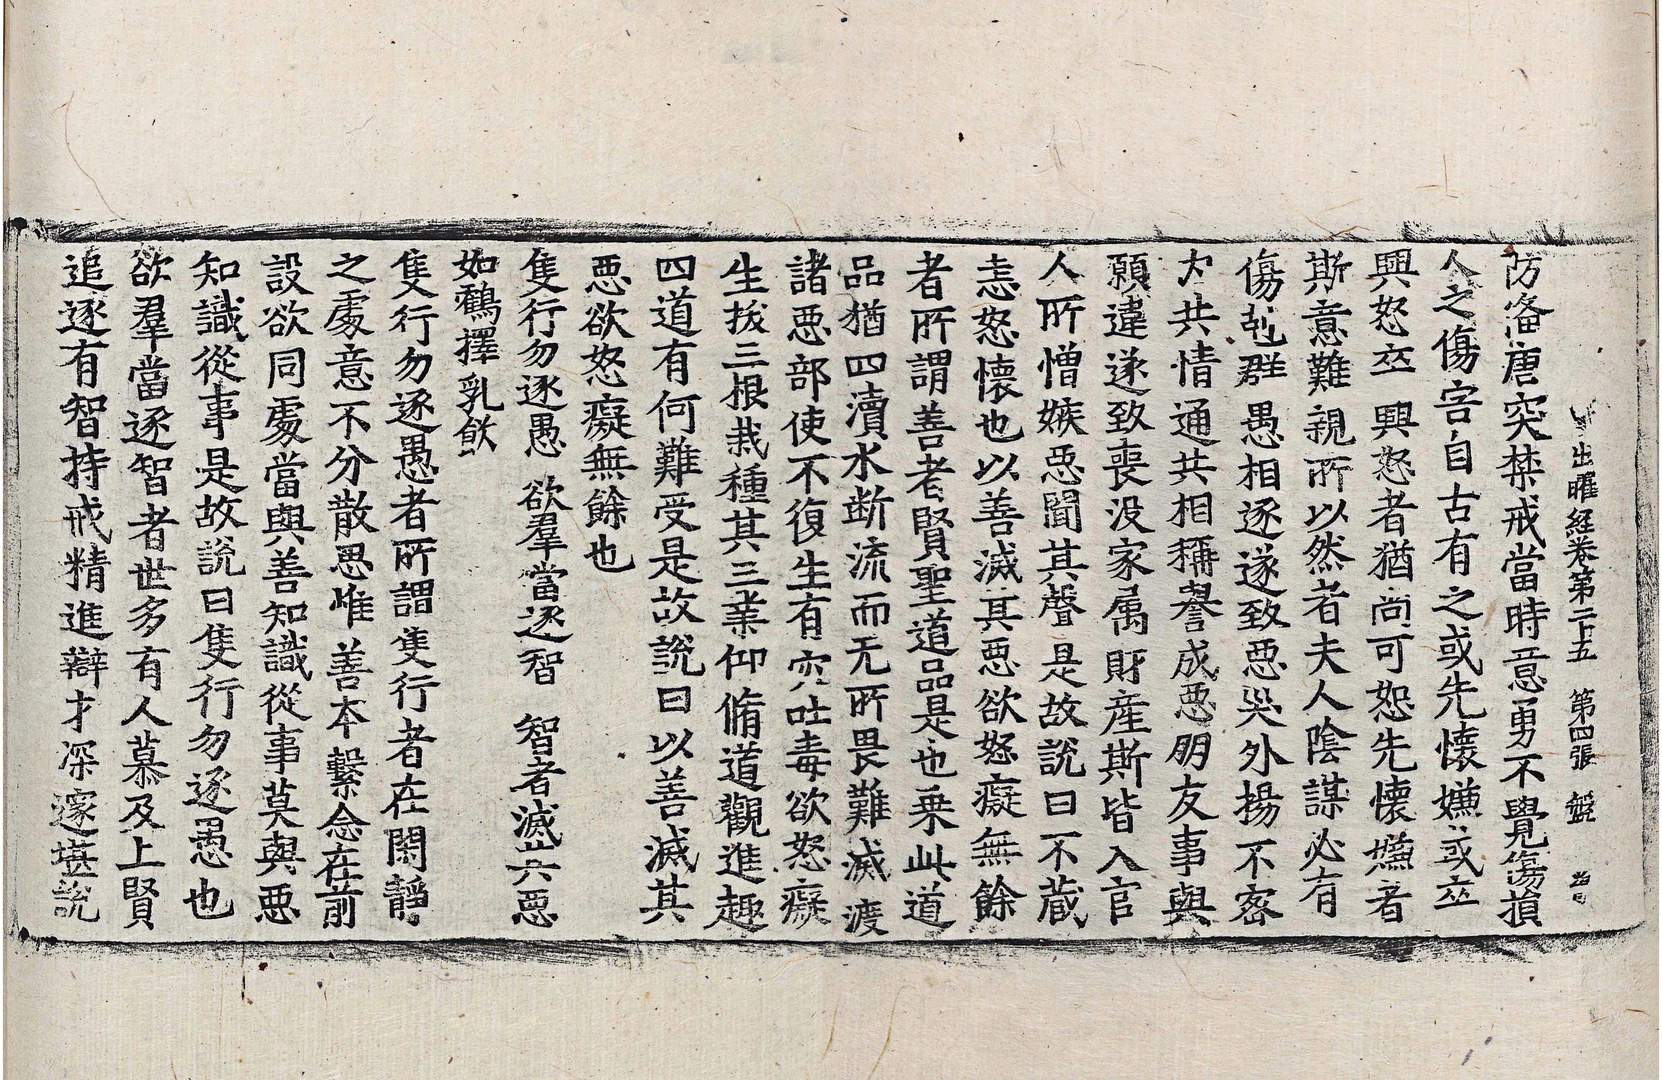 出曜経卷第二十五 第四張 盤
防俻唐突禁戒當時意勇不覺傷損
人之傷害自古有之或先懷嫌或卒
興怒卒興怒者猶尚可恕先懷嫌者
斯意難親所以然者夫人陰謀必有
傷尅群愚相逐遂致惡哭外揚不客
力共情通共相稱譽成惡朋友事與
願違遂致喪没家属財産斯皆入官
人所憎嫉惡聞其聲是故說曰不藏
恚怒懷也以善滅其惡欲怒癡無餘
者所謂善者賢聖道品是也乗此道
品猶四瀆水断流而无所畏難滅渡
諸惡部使不復生有穴吐毒欲怒癡
生拔三根栽種其三業仰脩道觀進趣
四道有何難受是故說曰以善滅其
惡欲怒癡無餘也
隻行勿逐愚 欲羣當逐智 智者滅其惡
如鸖擇乳飲
隻行勿逐愚者所謂隻行者在閑靜
之處意不分散思惟善本繫念在前
設欲同處當與善知識從事莫與惡
知識從事是故說曰隻行勿逐愚也
欲羣當逐智者世多有人慕及上賢
追逐有智持戒精進辯才深邃堪說